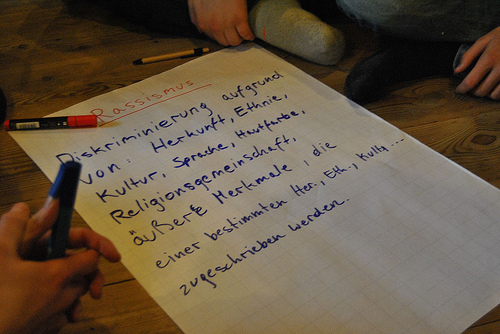 Rassismus
Diskriminierung aufgrund
von: Herkunft, Ethnie,
Kultur, Sprache, Hautfarbe,
Religionsgemeinschaft,
äußere Merkmale, die
einer bestimmten Her., Eth., Kult, ...
zugeschrieben werden.